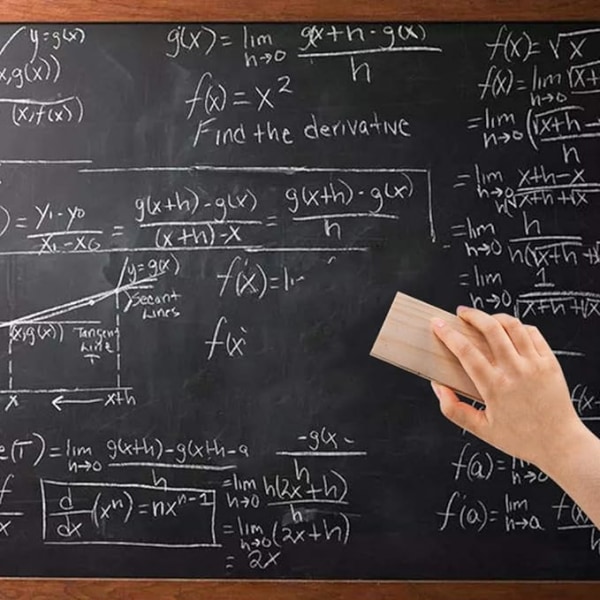 y=g(x)
x,g(x))
(x,f(x))
g'(x) = lim h→0 gx+h - g(x) / h
f(x) = x²
Find the derivative
) = y₁-y₀ / x₁-x₀ = g(x+h)-g(x) / (x+h)-x = g(x+h)-g(x) / h
y=g(x)
Secant
Lines
x,g(x))
Tangent
Line
T
x ← x+h
f(x)=
f(x
e(T) = lim h→0 g(x+h)-g(x+h-a / h
d/dx (xⁿ) = nxⁿ⁻¹
-g(x
h
= lim h→0 h(2x+h) / h
= lim h→0 (2x+h)
= 2x
f(x) = √x
f(x) = lim h→0 √x+
= lim h→0 (√x+h - / h
= lim x+h-x / √x+h+√x
= lim h→0 h / h(√x+h +√x
= lim h→0 1 / √x+h +√x
f(a) =
f'(a) = lim h→a